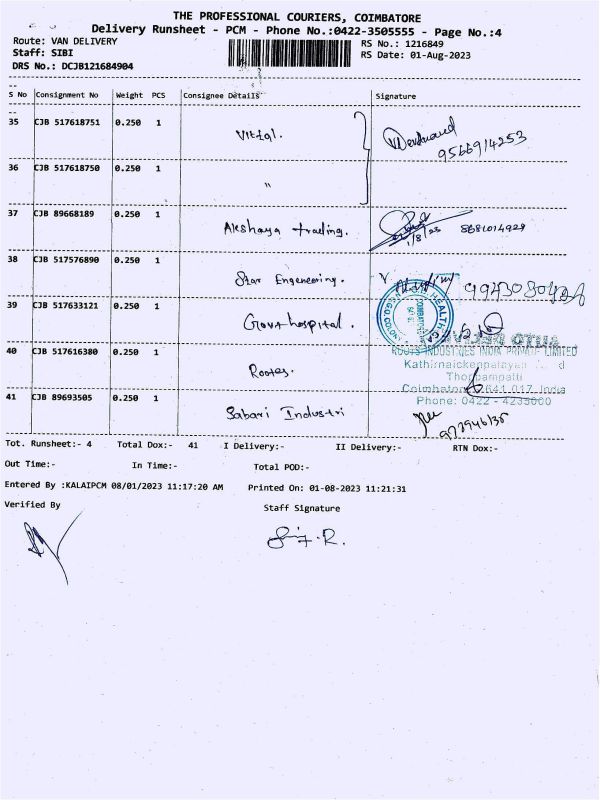 THE PROFESSIONAL COURIERS, COIMBATORE
Delivery Runsheet - PCM - Phone No.:0422-3505555 - Page No.:4
Route: VAN DELIVERY
RS No.: 1216849
Staff: SIBI
RS Date: 01-Aug-2023
DRS No.: DCJB121684904
S No Consignment No Weight PCS Consignee Details Signature
35 CJB 517618751 0.250 1 Vittal. 9566914253
36 CJB 517618750 0.250 1 "
37 CJB 89668189 0.250 1 Akshaya trading. 1/8/23 8681014929
38 CJB 517576890 0.250 1 Star Engeneering.
39 CJB 517633121 0.250 1 Govt hospital.
40 CJB 517616380 0.250 1 Rootes.
ROOTS INDUSTRIES INDIA PRIVATE LIMITED
Kathirnaickenpalayam
Thoppampatti
Coimbatore 641 017, India
Phone: 0422 - 4233000
41 CJB 89693505 0.250 1 Sabari Industri
Tot. Runsheet:- 4 Total Dox:- 41 I Delivery:- II Delivery:- RTN Dox:-
Out Time:- In Time:- Total POD:-
Entered By :KALAIPCM 08/01/2023 11:17:20 AM Printed On: 01-08-2023 11:21:31
Verified By Staff Signature